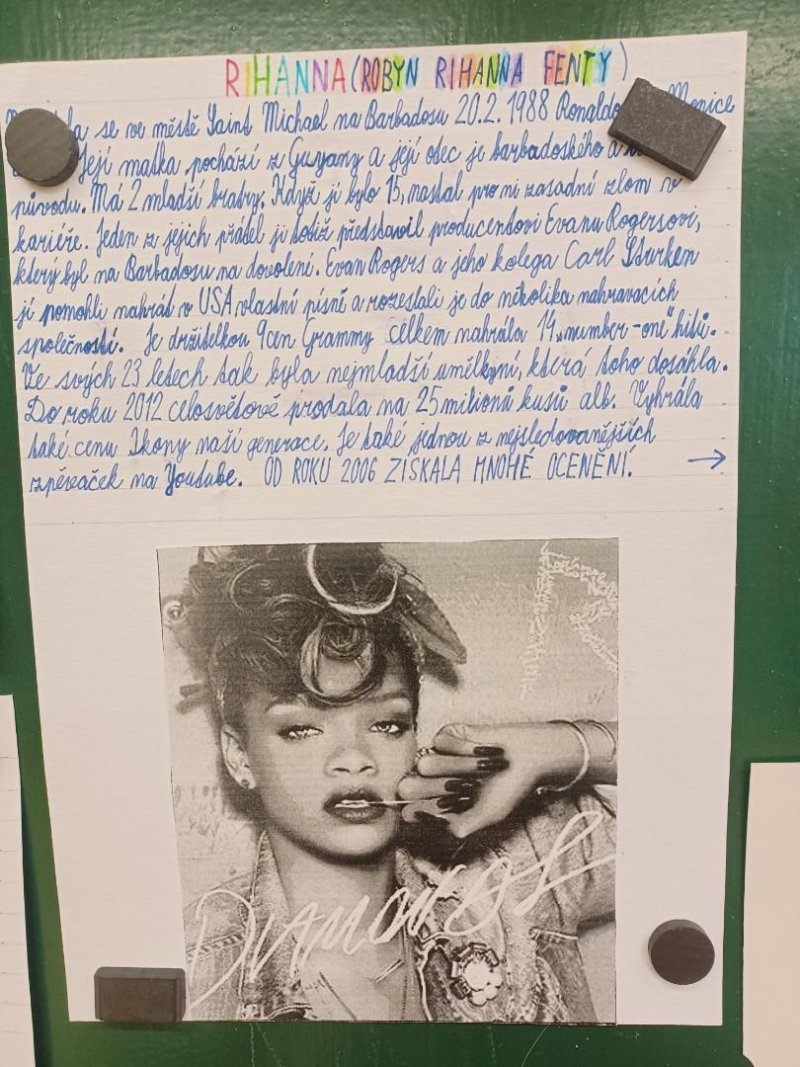 RIHANNA (ROBYN RIHANNA FENTY)
se ve městě Saint Michael na Barbadosu 20.2. 1988 Monice
Její matka pochází z Guyany a její otec je barbadoského a
původu. Má 2 mladší bratry. Když jí bylo 15, nastal pro ni zasadní zlom v
kariéře. Jeden z jejich přátel ji totiž představil producentovi Evanu Rogersovi,
který byl na Barbadosu na dovolení. Evan Rogers a jeho kolega Carl Sturken
jí pomohli nahrád v USA vlastní písně a rozeslali je do několika nahravacích
společností. Je držitelkou 9 cen Grammy celkem nahrála 14 „number-one" hitů.
Ve svých 23 letech tak byla nejmladší umělkyní, která toho dosáhla.
Do roku 2012 celosvětově prodala na 25 milionů kusů alb. Vyhrála
také cenu Ikony naší generace. Je také jednou z nejsledovanějších
zpěvaček na Youtube. OD ROKU 2006 ZISKALA MNOHÉ OCENĚNÍ. →
R
DIAMONDS